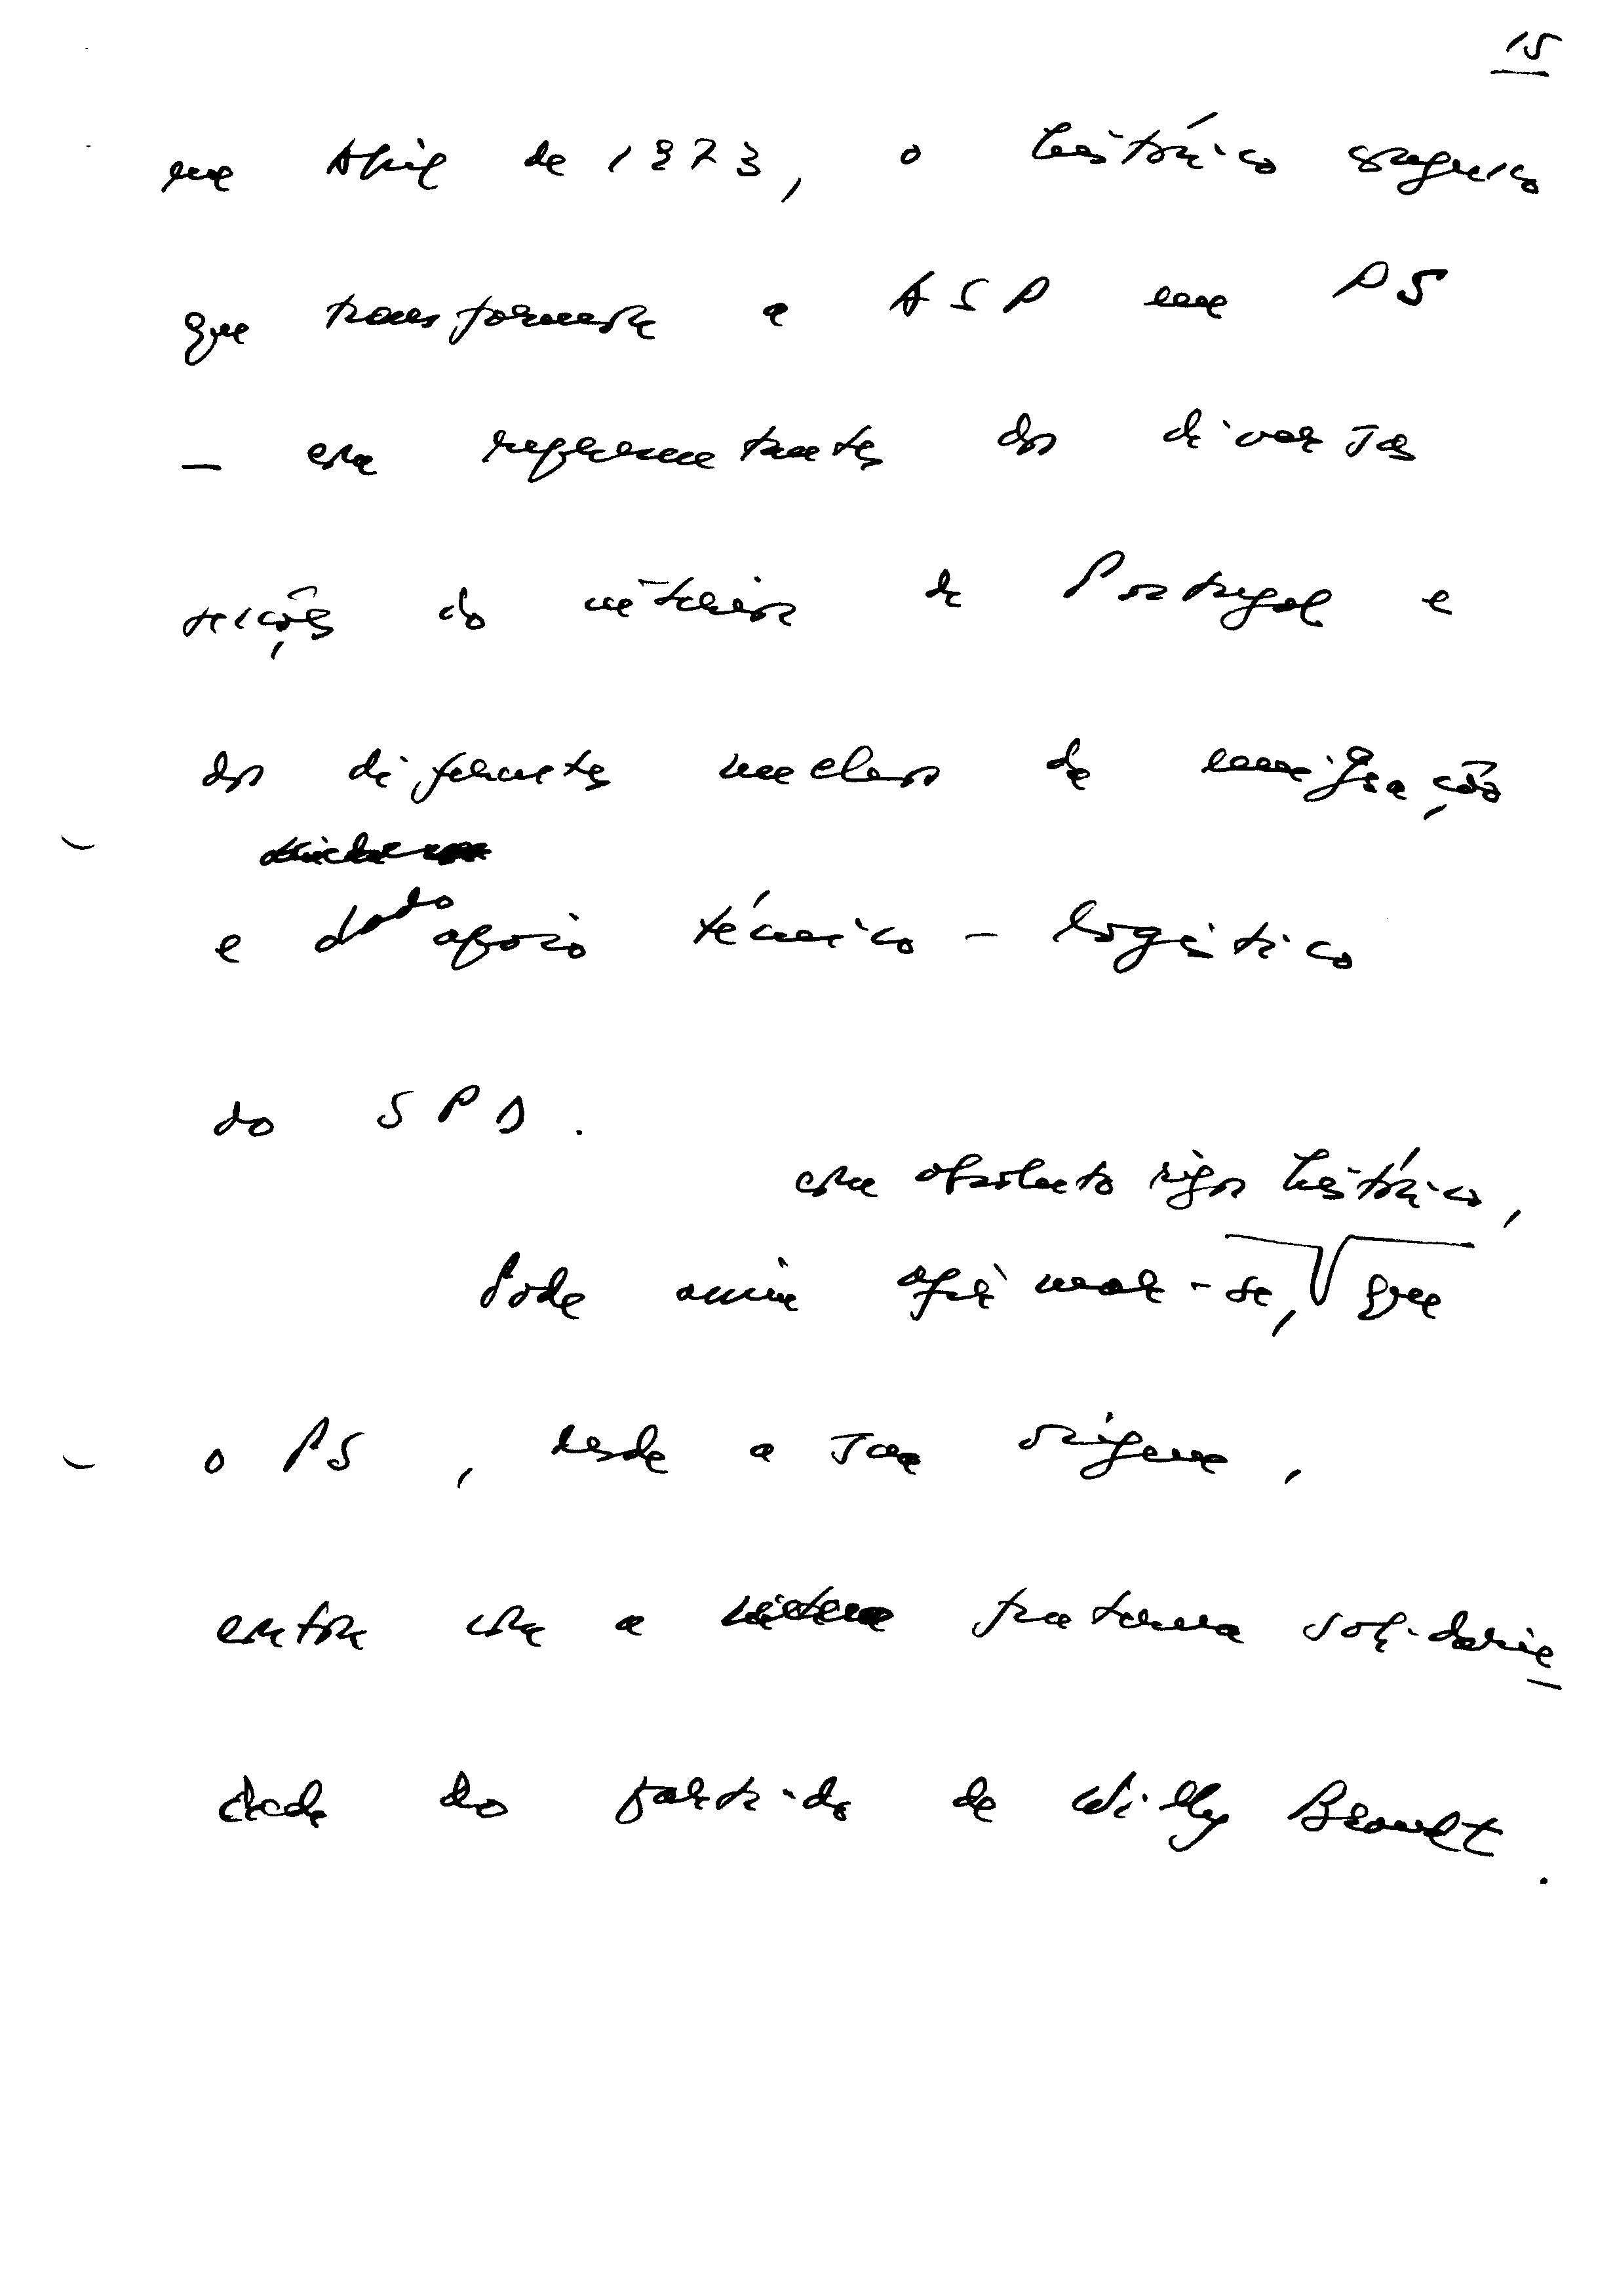 15
em Abril de 1973, o histórico congresso
que transformou a ASP em PS
– com representantes das diversas
secções do interior de Portugal e
dos diferentes nucleos de emigração
e dado apoio técnico-logístico
do SPD.
com absoluto rigor histórico,
Pode assim afirmar-se, que
o PS, desde a sua origem,
contou com a fraterna solidarie
dade do partido de Willy Brandt.